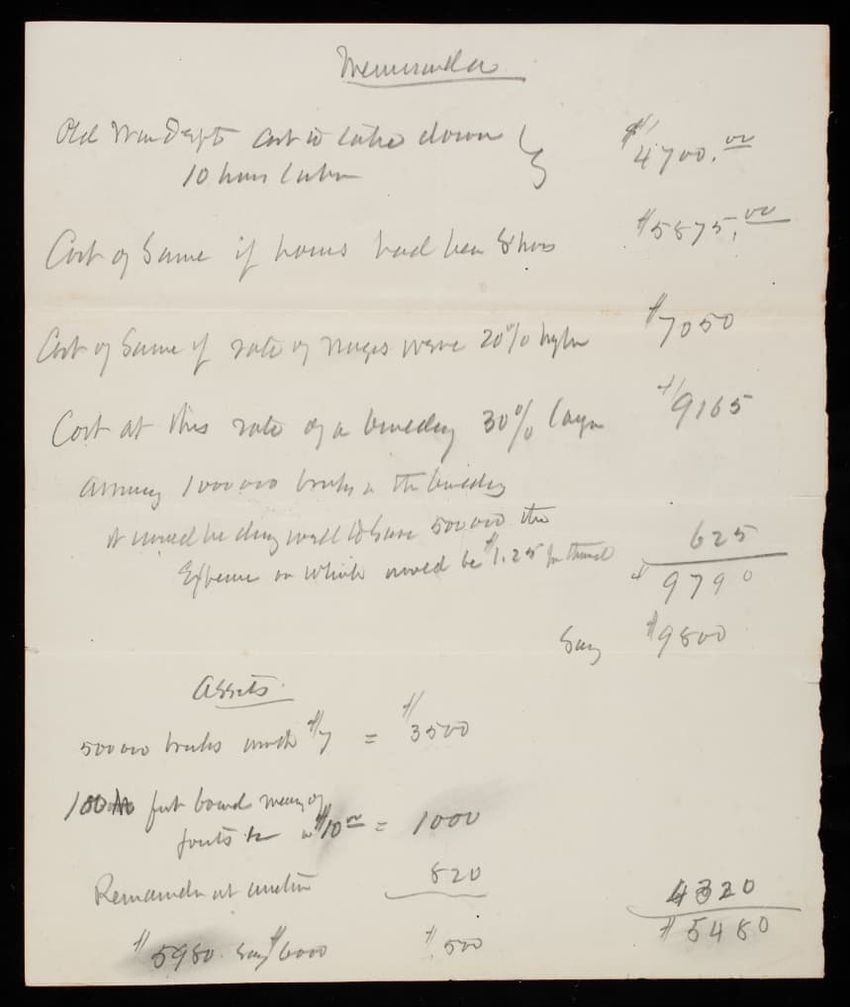 Memoranda
Old War Dept cost to take down $4700.00
10 hours labor
Cost of Same if hours had been 8 hours $5875.00
Cost of Same if rate of wages were 20% higher $7050
Cost at this rate of a building 30% larger $9165
Assuming 1000000 bricks in the building
it would be doing well to save 500000 the
Expense on which would be $1.25 per thousd 625
$9790
Say $9800
Assets.
500000 bricks worth $7 = $3500
100 M feet board meas of
joists &c $10.00 = 1000
Remainder at auction 820 4320
$5480
$5980. Say $6000 $500